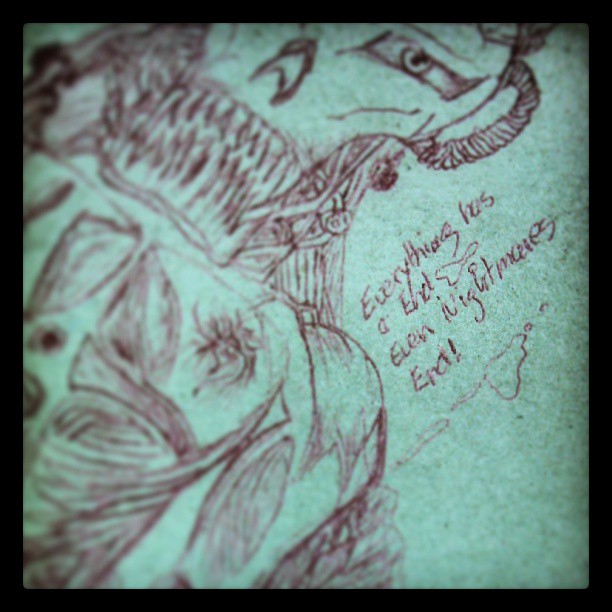 Everything has
a End
Even Nightmares
End!